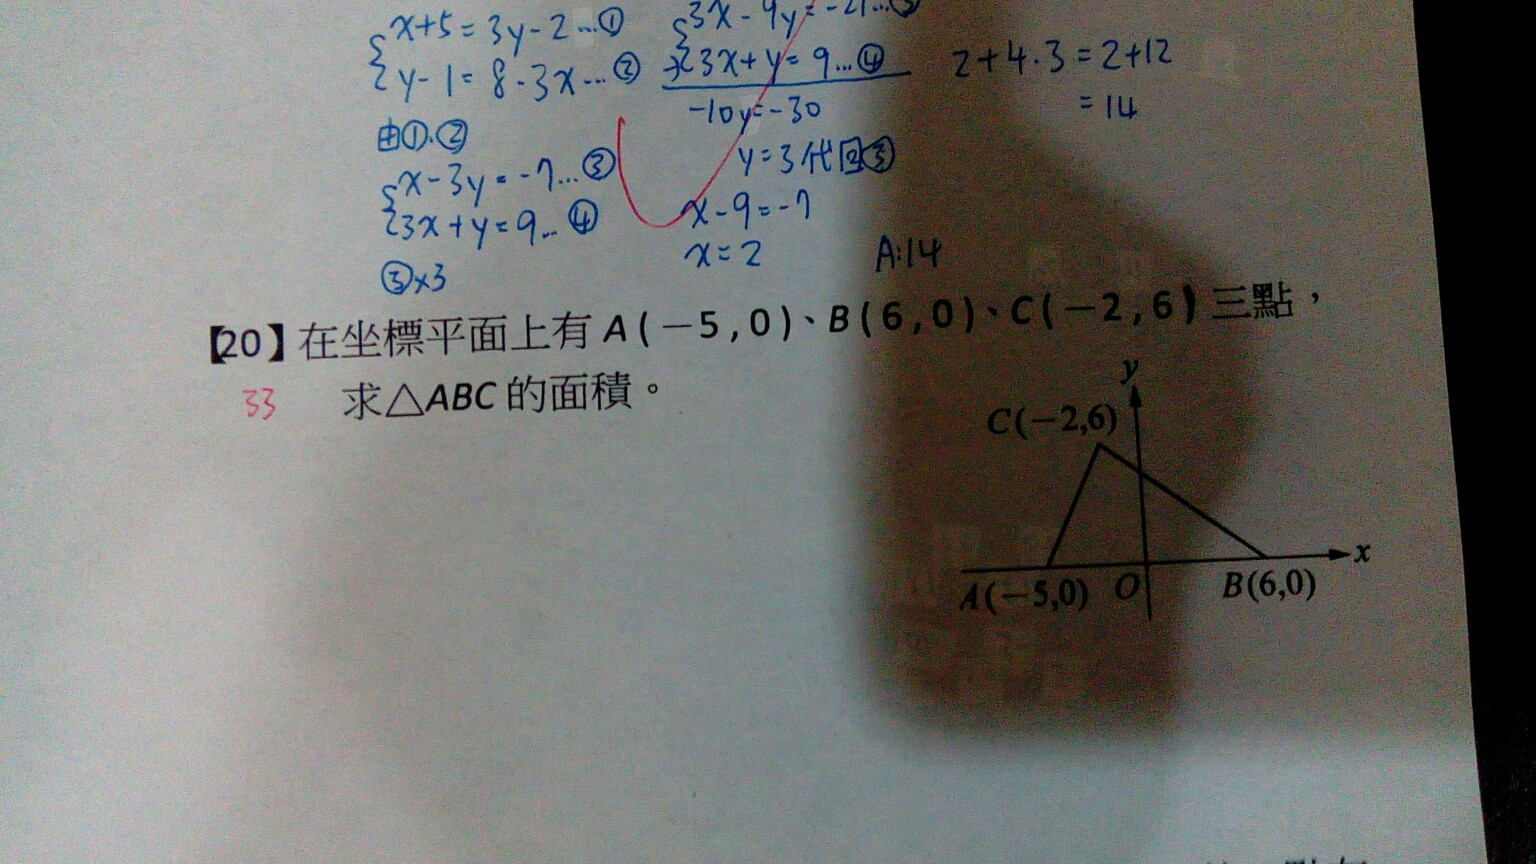 x+5=3y-2...①
y-1=8-3x...②
由①.②
x-3y=-7...③
3x+y=9...④
③x3
3x-9y=-21...③
3x+y=9...④
-10y=-30
y=3代③
x-9=-7
x=2
2+4.3=2+12
=14
A:14
【20】在坐標平面上有A(-5,0)、B(6,0)、C(-2,6)三點,
33
求△ABC的面積。
y
C(-2,6)
x
A(-5,0) O B(6,0)